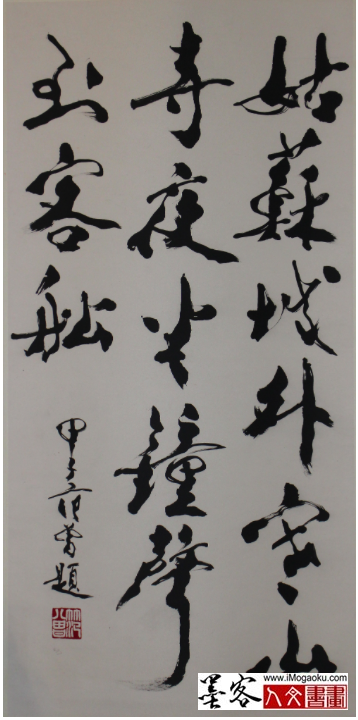 姑蘇城外寒山
寺夜半鐘聲
到客船
甲子范曾題
墨客
www.iMogaoku.com
人文書畫